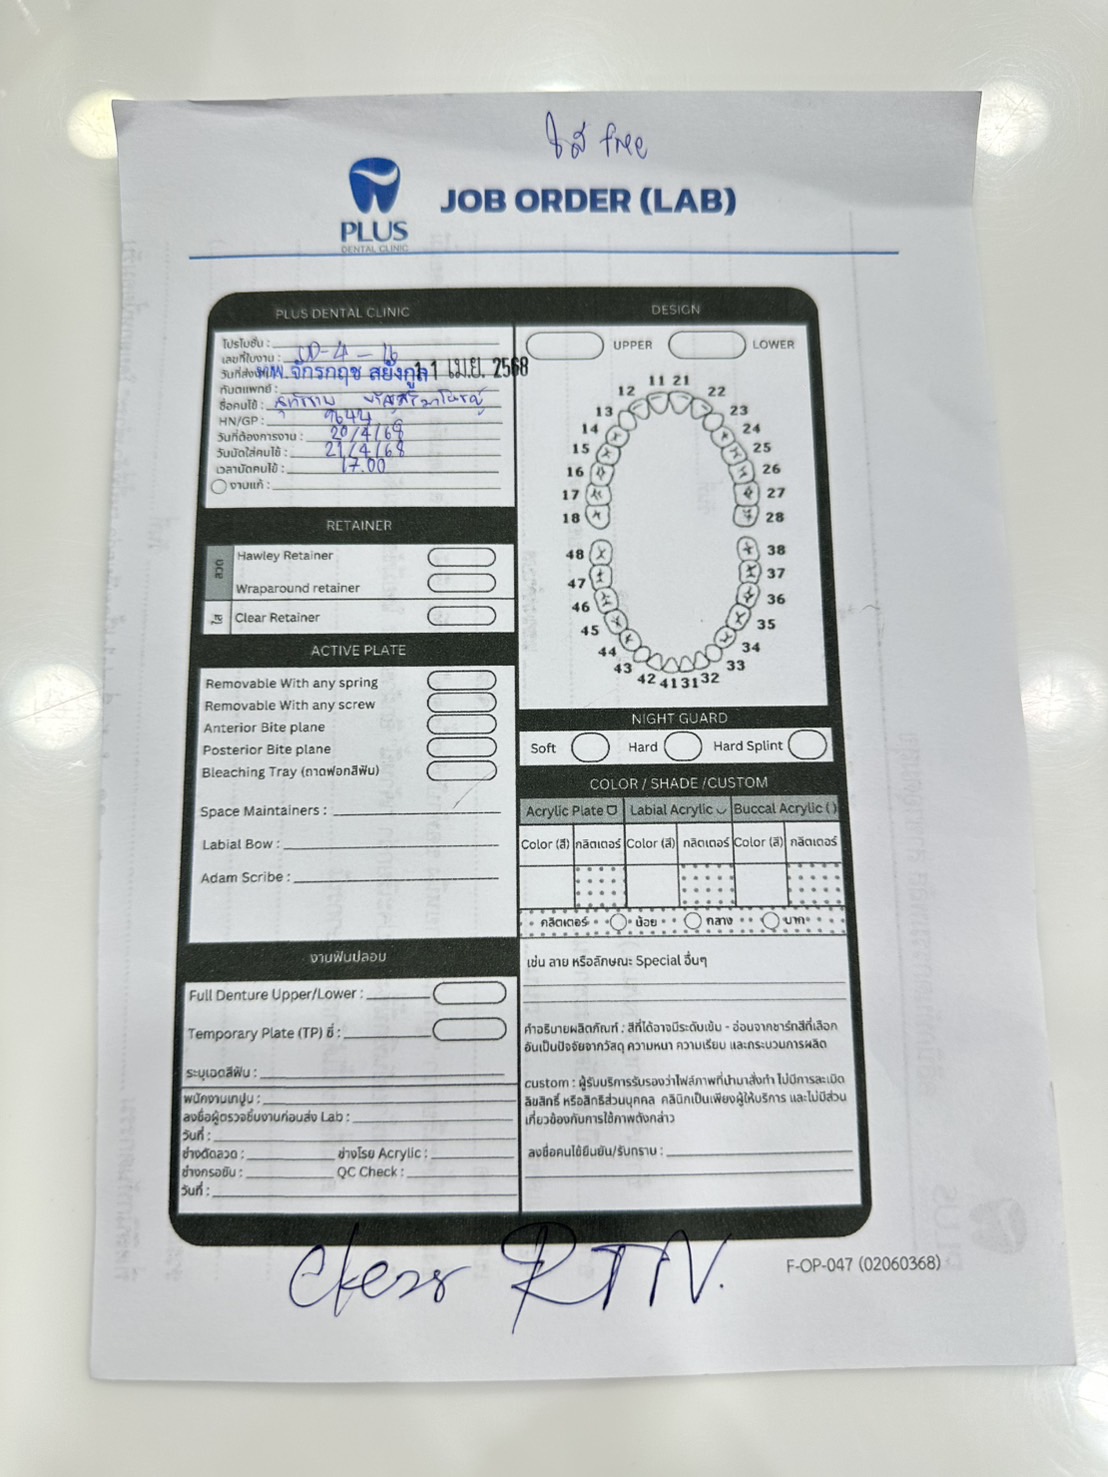 ใส free
PLUS
DENTAL CLINIC
JOB ORDER (LAB)
PLUS DENTAL CLINIC
โปรโมชั่น :
เลขที่ใบงาน : OD-4-16
วันที่ส่งพิมพ์ 11 เม.ย. 2568
ทันตแพทย์ : ทพ.จักรกฤช สยังกูล
ชื่อคนไข้ :
HN/GP : 9644
วันที่ต้องการงาน : 20/4/68
วันนัดใส่คนไข้ : 21/4/68
เวลานัดคนไข้ : 17.00
งานแก้ :
RETAINER
ลวด
Hawley Retainer
Wraparound retainer
ใส
Clear Retainer
ACTIVE PLATE
Removable With any spring
Removable With any screw
Anterior Bite plane
Posterior Bite plane
Bleaching Tray (ถาดฟอกสีฟัน)
Space Maintainers :
Labial Bow :
Adam Scribe :
งานฟันปลอม
Full Denture Upper/Lower :
Temporary Plate (TP) ซี่ :
ระบุเฉดสีฟัน :
พนักงานเทปูน :
ลงชื่อผู้ตรวจชิ้นงานก่อนส่ง Lab :
วันที่ :
ช่างดัดลวด : ช่างโรย Acrylic :
ช่างกรอขัน : QC Check :
วันที่ :
DESIGN
UPPER LOWER
11 21
12 22
13 23
14 24
15 25
16 26
17 27
18 28
48 38
47 37
46 36
45 35
44 34
43 33
42 41 31 32
NIGHT GUARD
Soft Hard Hard Splint
COLOR / SHADE /CUSTOM
Acrylic Plate Labial Acrylic Buccal Acrylic ( )
Color (สี) กลิตเตอร์ Color (สี) กลิตเตอร์ Color (สี) กลิตเตอร์
กลิตเตอร์ น้อย กลาง มาก
เช่น ลาย หรือลักษณะ Special อื่นๆ
คำอธิบายผลิตภัณฑ์ : สีที่ได้อาจมีระดับเข้ม - อ่อนจากชาร์ทสีที่เลือก
อันเป็นปัจจัยจากวัสดุ ความหนา ความเรียบ และกระบวนการผลิต
custom : ผู้รับบริการรับรองว่าไฟล์ภาพที่นำมาสั่งทำ ไม่มีการละเมิด
ลิขสิทธิ์ หรือสิทธิส่วนบุคคล คลินิกเป็นเพียงผู้ให้บริการ และไม่มีส่วน
เกี่ยวข้องกับการใช้ภาพดังกล่าว
ลงชื่อคนไข้ยืนยัน/รับทราบ :
clear RTN.
F-OP-047 (02060368)